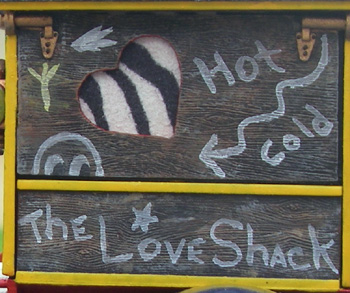 Hot
Cold
The Love Shack